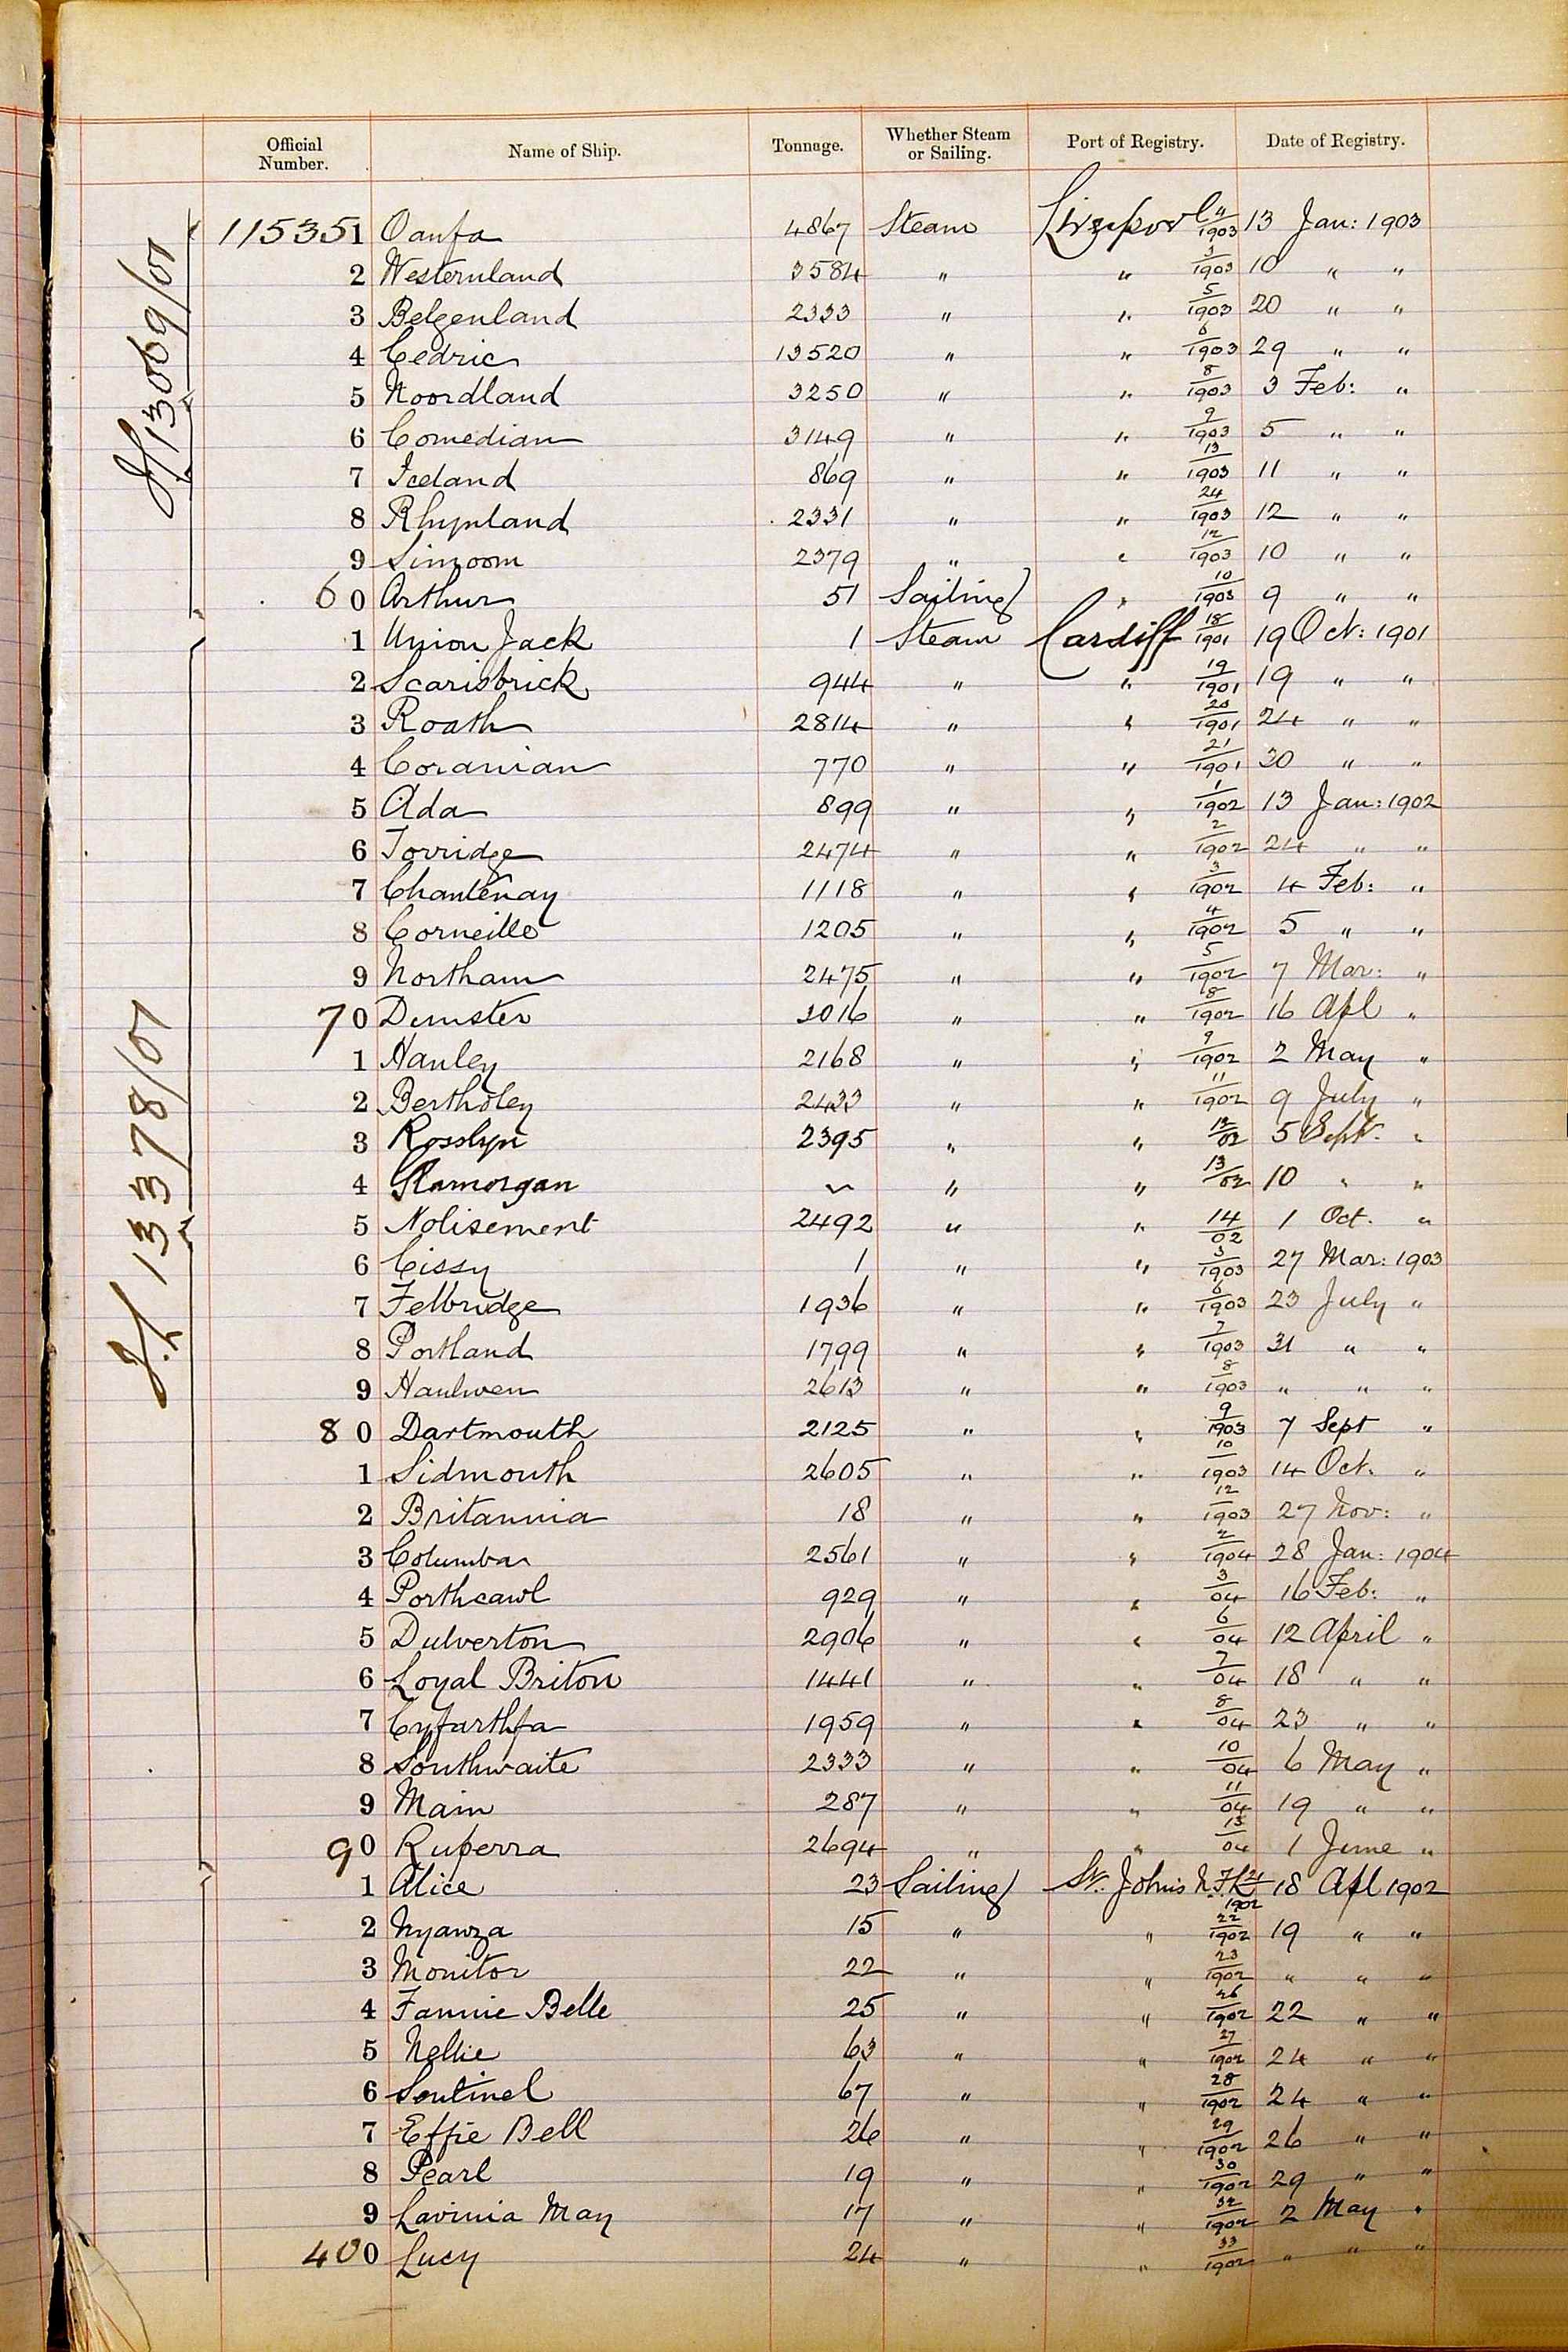 Official Number. Name of Ship. Tonnage. Whether Steam or Sailing. Port of Registry. Date of Registry.
115351 Oanfa 4867 Steam Liverpool 4/1903 13 Jan: 1903
2 Westernland 3584 " " 3/1903 10 " "
3 Belgenland 2333 " " 5/1903 20 " "
4 Cedric 13520 " " 6/1903 29 " "
5 Noordland 3250 " " 8/1903 3 Feb: "
6 Comedian 3149 " " 9/1903 5 " "
7 Iceland 869 " " 13/1903 11 " "
8 Rhynland 2331 " " 24/1903 12 " "
9 Simoom 2379 " " 12/1903 10 " "
60 Arthur 51 Sailing " 10/1903 9 " "
1 Union Jack 1 Steam Cardiff 18/1901 19 Oct: 1901
2 Scarisbrick 944 " " 19/1901 19 " "
3 Roath 2814 " " 20/1901 24 " "
4 Coranian 770 " " 21/1901 30 " "
5 Ada 899 " " 1/1902 13 Jan: 1902
6 Torridge 2474 " " 2/1902 24 " "
7 Chantenay 1118 " " 3/1902 4 Feb: "
8 Corneille 1205 " " 4/1902 5 " "
9 Northam 2475 " " 5/1902 7 Mar: "
70 Demster 2016 " " 8/1902 16 Apl "
1 Hanley 2168 " " 9/1902 2 May "
2 Bertholey 2433 " " 11/1902 9 July "
3 Rosslyn 2395 " " 12/02 5 Sept. "
4 Glamorgan " " 13/02 10 " "
5 Nolisement 2492 " " 14/02 1 Oct. "
6 Cissy 1 " " 3/1903 27 Mar: 1903
7 Felbridge 1936 " " 6/1903 23 July "
8 Portland 1799 " " 7/1903 31 " "
9 Haulwen 2613 " " 8/1903 " " "
80 Dartmouth 2125 " " 9/1903 7 Sept "
1 Sidmouth 2605 " " 10/1903 14 Oct. "
2 Britannia 18 " " 12/1903 27 Nov: "
3 Columba 2561 " " 2/1904 28 Jan: 1904
4 Porthcawl 929 " " 3/04 16 Feb: "
5 Dulverton 2906 " " 6/04 12 April "
6 Loyal Briton 1441 " " 7/04 18 " "
7 Cyfarthfa 1959 " " 8/04 23 " "
8 Southwaite 2333 " " 10/04 6 May "
9 Main 287 " " 11/04 19 " "
90 Ruperra 2694 " " 13/04 1 June "
1 Alice 23 Sailing St. Johns N.F. 21/1902 18 Apl 1902
2 Nyanza 15 " " 22/1902 19 " "
3 Monitor 22 " " 23/1902 " " "
4 Fannie Belle 25 " " 26/1902 22 " "
5 Nellie 63 " " 27/1902 24 " "
6 Sentinel 67 " " 28/1902 24 " "
7 Effie Bell 26 " " 29/1902 26 " "
8 Pearl 19 " " 30/1902 29 " "
9 Lavinia May 17 " " 32/1902 2 May "
400 Lucy 24 " " 33/1902 " " "
13069/01
13378/01